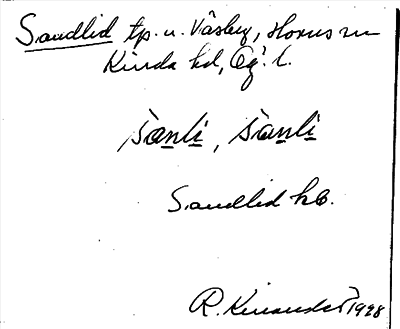 Sandlid tp. u. Väsby, Horns sn
Kinda hd, Ög. l.
sanli, sanli
Sandlid hb.
R. Kinander 1928